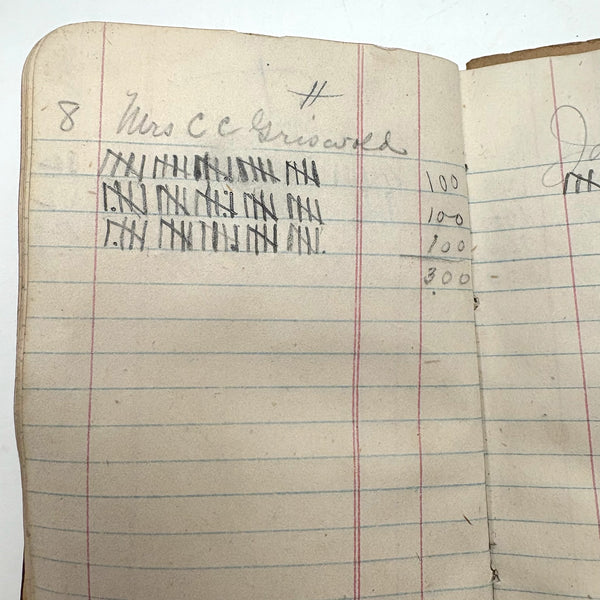 11
8 Mrs C C Griswold
100
100
100
300 -